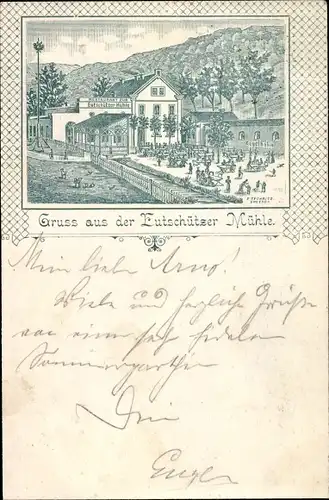 RESTAURANT ZUR
Eutschützer Mühle
Gruss aus der Eutschützer Mühle.
Mein lieber Arno!
Viele und herzliche Grüße
von einer sehr fidelen
Sommerparthie
Dein